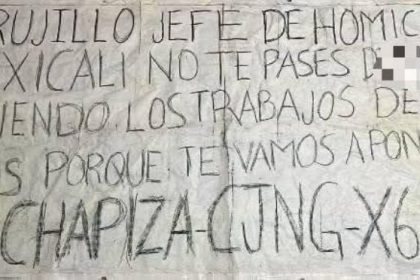 RUJILLO JEFE DE HOMIC
XICALI NO TE PASES D
IENDO LOS TRABAJOS DE
S PORQUE TE VAMOS A PON
CHAPIZA-CJNG-X6